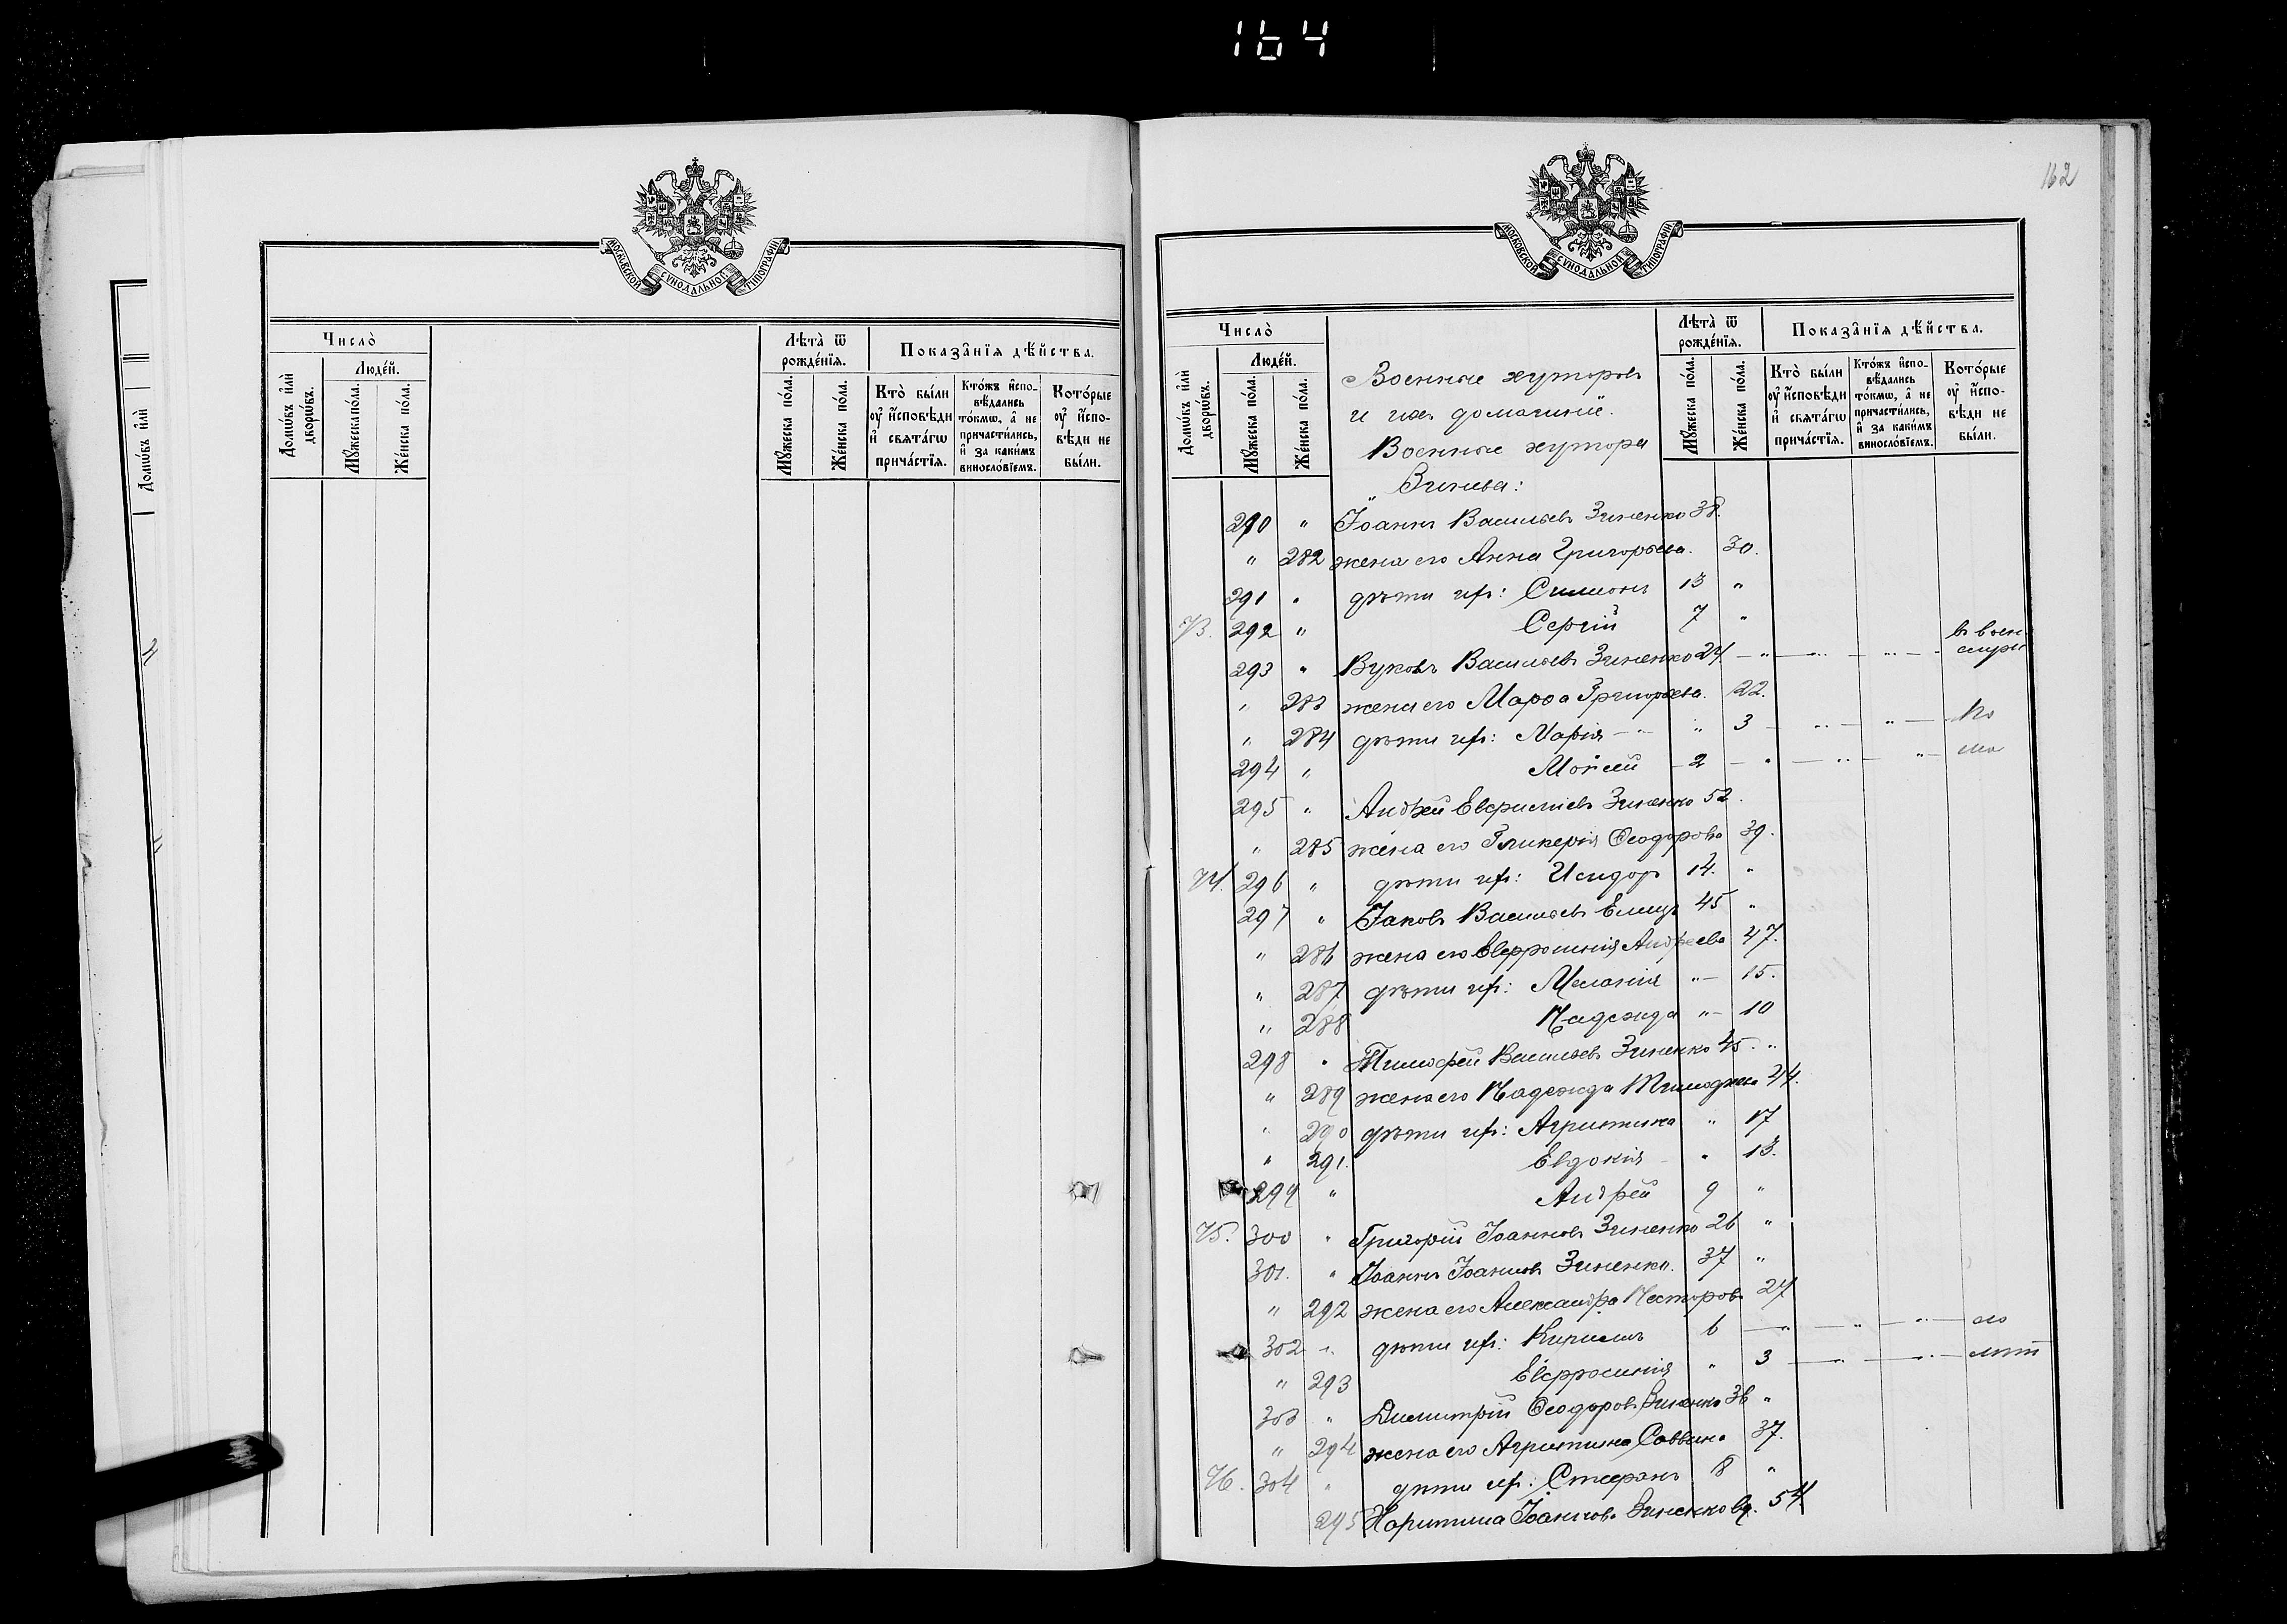 164
162
МОСКОВСКОЙ СѴНОДАЛЬНОЙ ТИПОГРАФІИ
Число̀
Людей.
Домѡвъ и҆лѝ дворѡвъ.
Мꙋжеска по́ла.
Же́нска по́ла.
Лѣта̀ ѿ рожде́нїѧ.
Мꙋжеска по́ла.
Же́нска по́ла.
Показа̑нїѧ дѣ́йства.
Кто̀ бы́ли ᲂу҆ и҆́сповѣди и҆ свѧта́гѡ прича́стїѧ.
Кто́жъ и҆спо-вѣ́дались то́кмѡ, а҆ не причасти́лись, и҆ за каки́мъ виносло́вїемъ.
Кото́рые ᲂу҆ и҆́спо-вѣди не бы́ли.
МОСКОВСКОЙ СѴНОДАЛЬНОЙ ТИПОГРАФІИ
Число̀
Людей.
Домѡвъ и҆лѝ дворѡвъ.
Мꙋжеска по́ла.
Же́нска по́ла.
Лѣта̀ ѿ рожде́нїѧ.
Мꙋжеска по́ла.
Же́нска по́ла.
Показа̑нїѧ дѣ́йства.
Кто̀ бы́ли ᲂу҆ и҆́сповѣди и҆ свѧта́гѡ прича́стїѧ.
Кто́жъ и҆спо-вѣ́дались то́кмѡ, а҆ не причасти́лись, и҆ за каки́мъ виносло́вїемъ.
Кото́рые ᲂу҆ и҆́спо-вѣди не бы́ли.
Военные хуторовъ
и ихъ домашніи.
Военные хутора
Зинева:
290 " Іоаннъ Васильевъ Зиненко 38.
" 282 жена его Анна Григорьева. 30.
291 " дѣти ихъ: Симеонъ 13 "
73. 292 " Сергій 7 "
293 " Василіевъ Зиненко 24 – " – " – " – въ воен. служ
" 283 жена его Марѳа Григорьева. 22.
" 284 дѣти ихъ: Марія – " " 3 – " – " – по
294 " Моисей 2 – " – " – " – мал
295 " Андрей Зиненко 52.
" 285 жена его Гликерія Ѳеодорова 39.
74. 296 " дѣти ихъ: Исидоръ 14. "
297 " Іаковъ Васильевъ 45 "
" 286 жена его Евфросинія Андреева 47.
" 287 дѣти ихъ: Меланія " 15.
" 288 Надежда " 10
298 " Тимофей Васильевъ Зиненко 45. "
" 289 жена его Надежда 44.
" 290 дѣти ихъ: Агрипина " 17
" 291. Евдокія " 13.
299 " Андрей 9 "
75. 300 " Григорій Іоанновъ Зиненко 26 "
301. " Іоаннъ Іоанновъ Зиненко. 37 "
" 292 жена его Александра Несторова 27
302 " дѣти ихъ: Кирилъ 6 – " – " – " – мо
" 293 Евфросинія " 3 – " – " –
303 " Димитрій Ѳеодоровъ Зиненко 36 "
" 294 жена его Агрипина Саввина 37.
76. 304 " дѣти ихъ: Стефанъ 8 "
295 Харитина Іоаннова Зиненко вд. 54